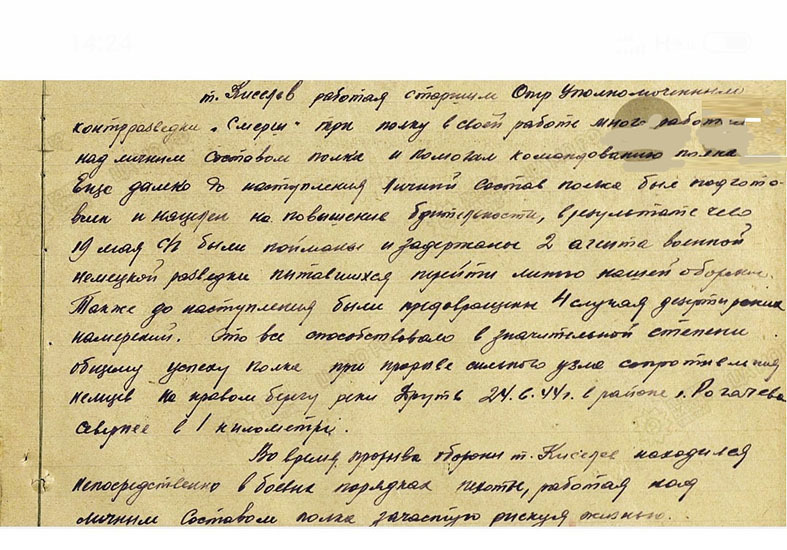 14:24
т. Киселев работая старшим Опр Уполномоченным
контрразведки „Смерш" при полку в своей работе много работал
над личным составом полка и помогал командованию полка
Еще далеко до наступления личный состав полка был подгото-
влен и нацелен на повышение бдительности, в результате чего
19 мая с/г были пойманы и задержаны 2 агента военной
немецкой разведки пытавшихся перейти линию нашей обороны.
Также до наступления были предовращены 4 случая дезертирских
намерений. Это все способствовало в значительной степени
общему успеху полка при прорыве сильного узла сопротивления
немцев на правом берегу реки Друть 24.6.44г. в районе г. Рогачева
севернее в 1 километре.
Во время прорыва обороны т. Киселев находился
непосредственно в боевых порядках пехоты, работая над
личным составом полка зачастую рискуя жизнью.